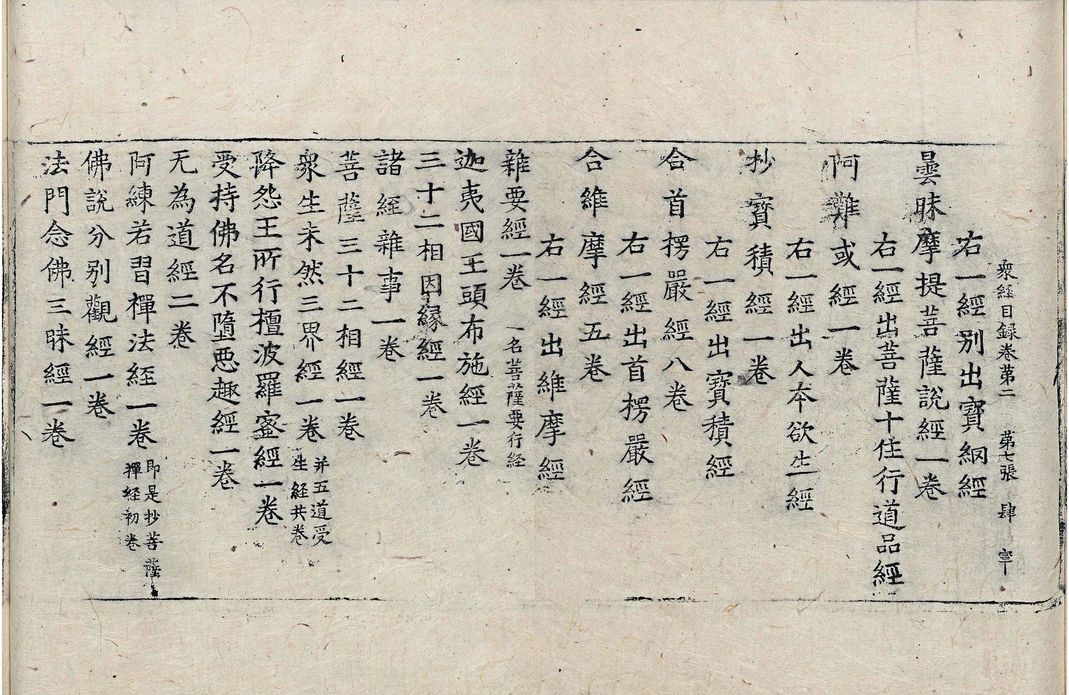 衆經目録卷第二　第七張　肆　宇
右一經别出寳網經
曇昧摩提菩薩說經一卷
右一經出菩薩十住行道品經
阿難或經一卷
右一經出人本欲生經
抄寳積經一卷
右一經出寳積經
合首楞嚴經八卷
右一經出首楞嚴經
合維摩經五卷
右一經出維摩經
雜要經一卷 一名菩薩要行経
迦夷國王頭布施經一卷
三十二相因緣經一卷
諸經雜事一卷
菩薩三十二相經一卷
衆生未然三界經一卷 并五道受生経共卷
降怨王所行檀波羅蜜經一卷
受持佛名不墮惡趣經一卷
无為道經二卷
阿練若習禪法経一卷 即是抄菩薩禪経初卷
佛說分别觀經一卷
法門念佛三昧經一卷